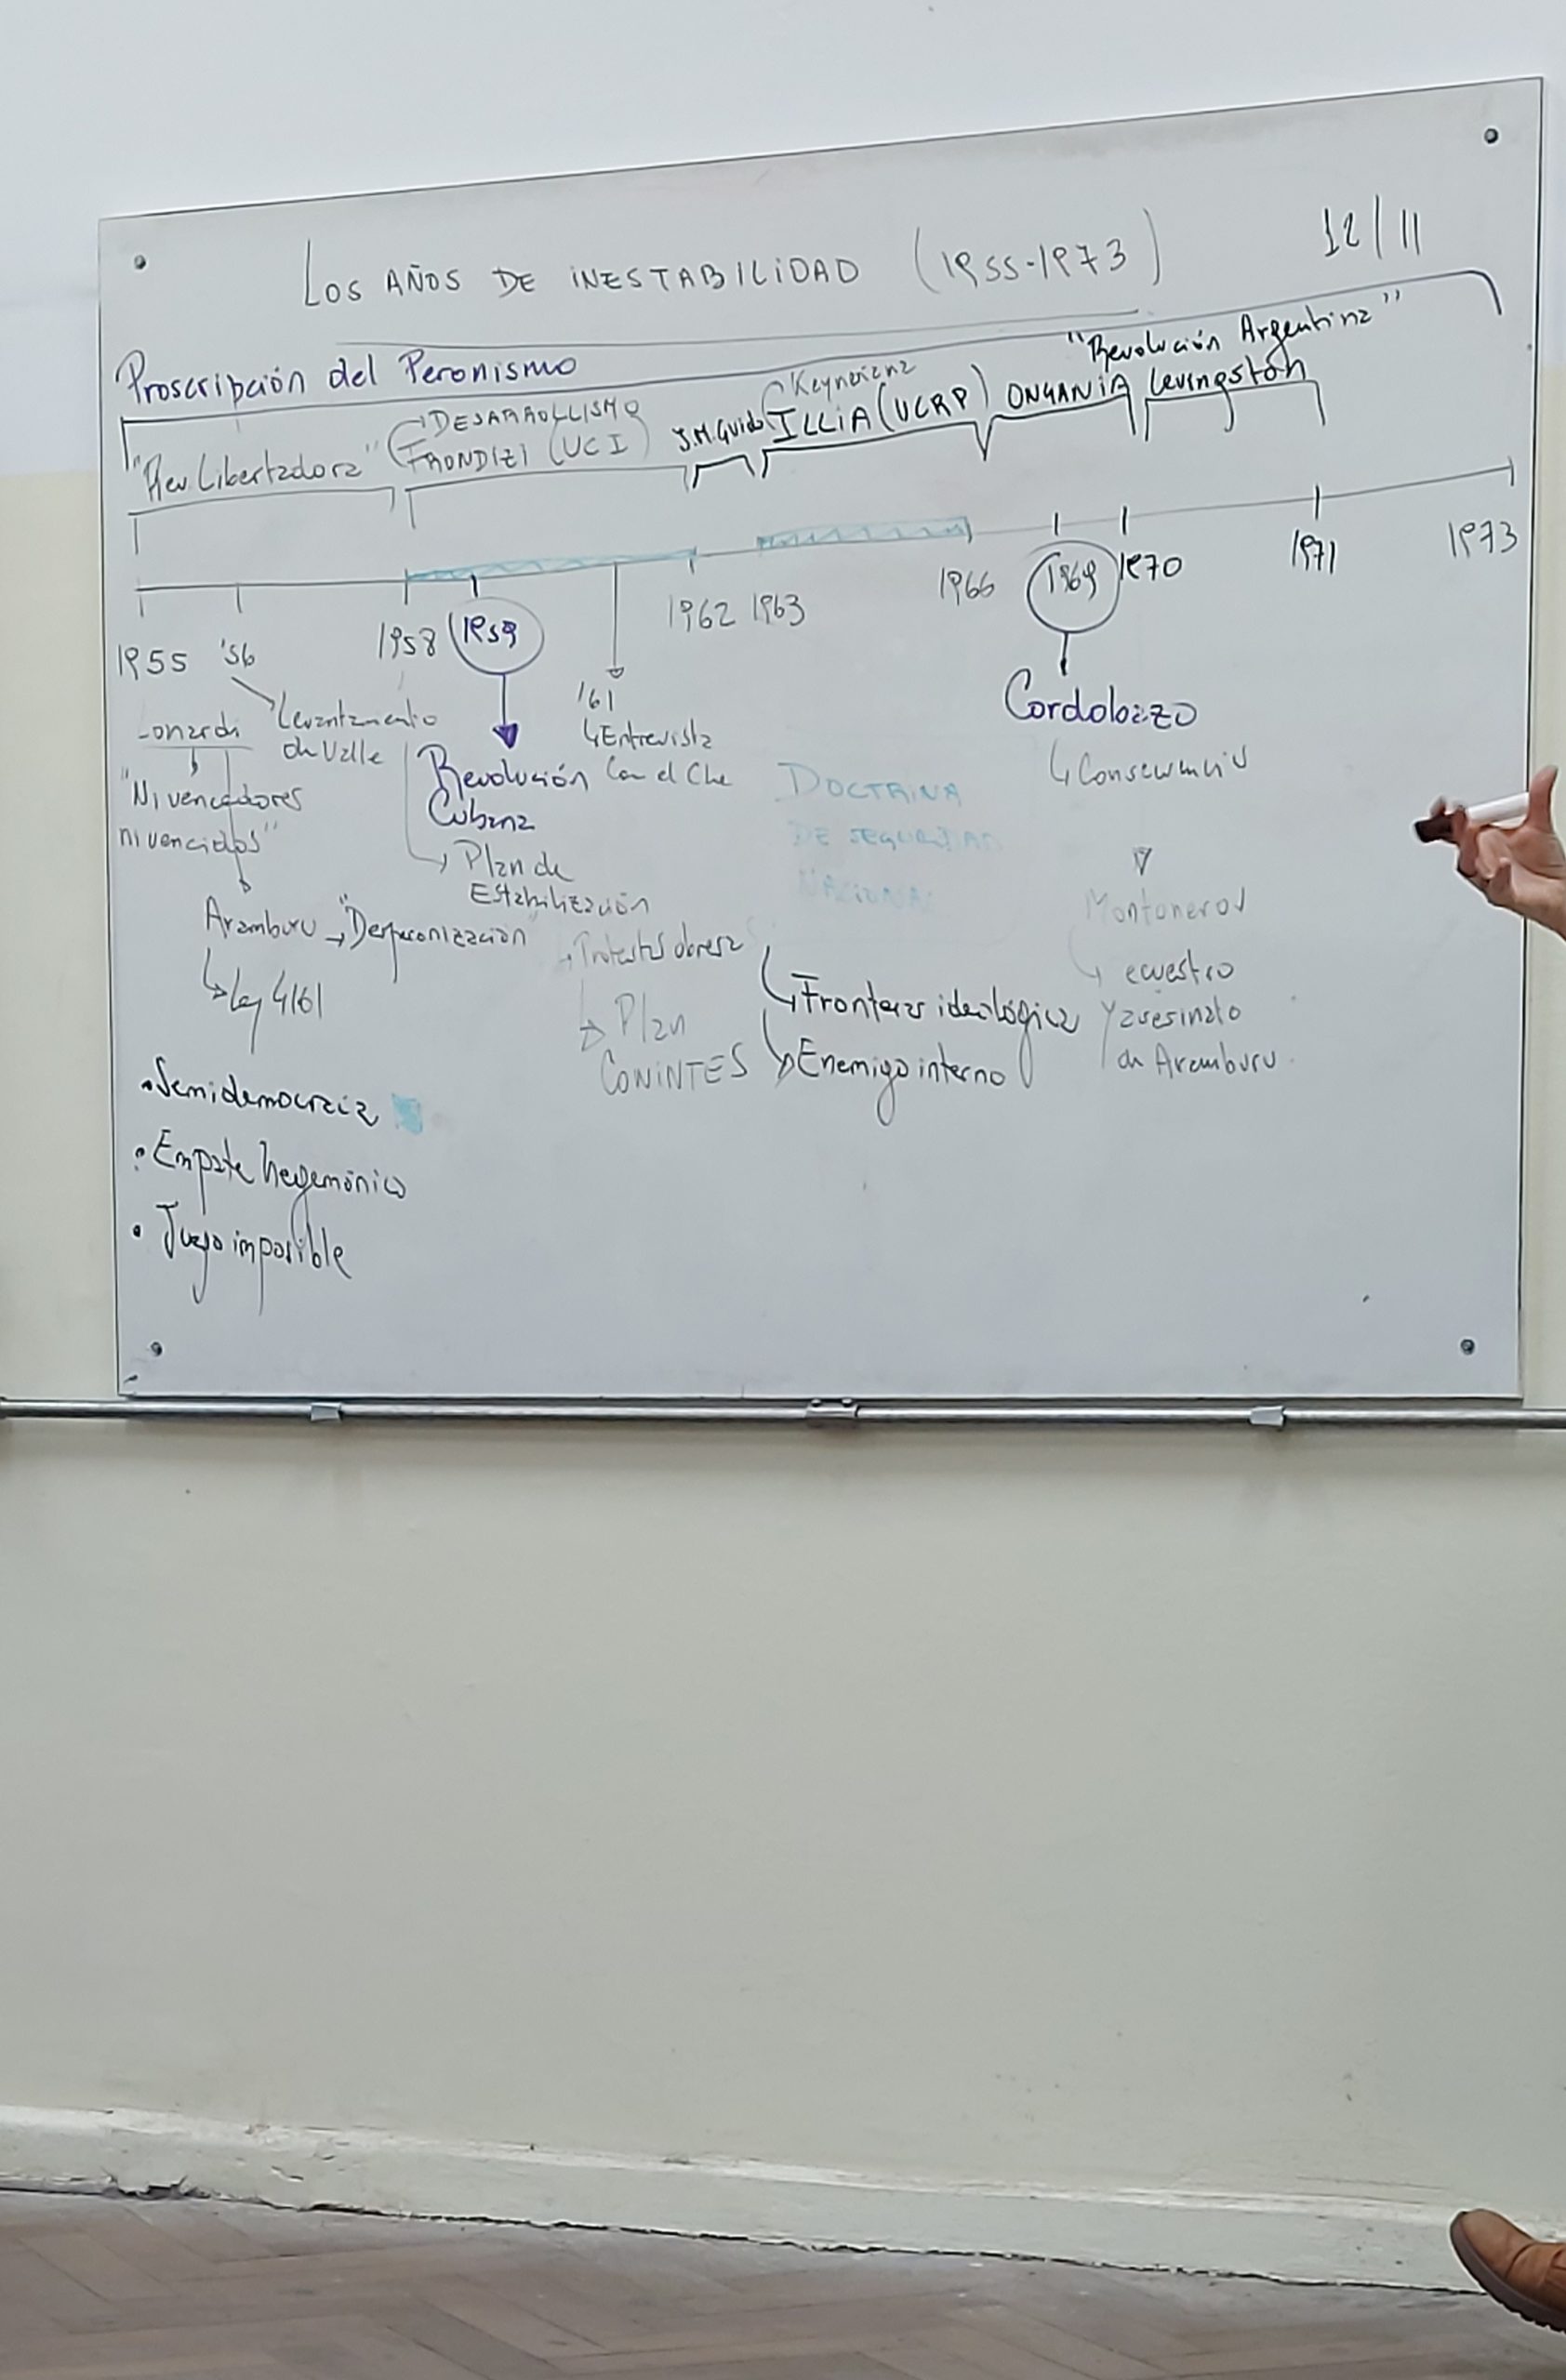 LOS AÑOS DE INESTABILIDAD (1955-1973)
12/11
Proscripción del Peronismo
"Revolución Argentina"
"Rev. Libertadora"
DESARROLLISMO
FRONDIZI (UCI)
J.M. Guido
Keynesiana
ILLIA (UCRP)
ONGANIA
Levingston
1955
'56
1958
1959
'61
1962
1963
1966
1969
1970
1971
1973
Lonardi
"Ni vencedores
ni vencidos"
Levantamiento
de Valle
Aramburu → "Desperonización"
Ley 4161
Revolución
Cubana
Plan de
Estabilización
Entrevista
con el Che
Protestas obreras
Plan
CONINTES
DOCTRINA
DE SEGURIDAD
NACIONAL
Fronteras ideológicas
Enemigo interno
Cordobazo
Montoneros
y asesinato
de Aramburu.
• Semidemocracia
• Empate hegemónico
• Juego imposible